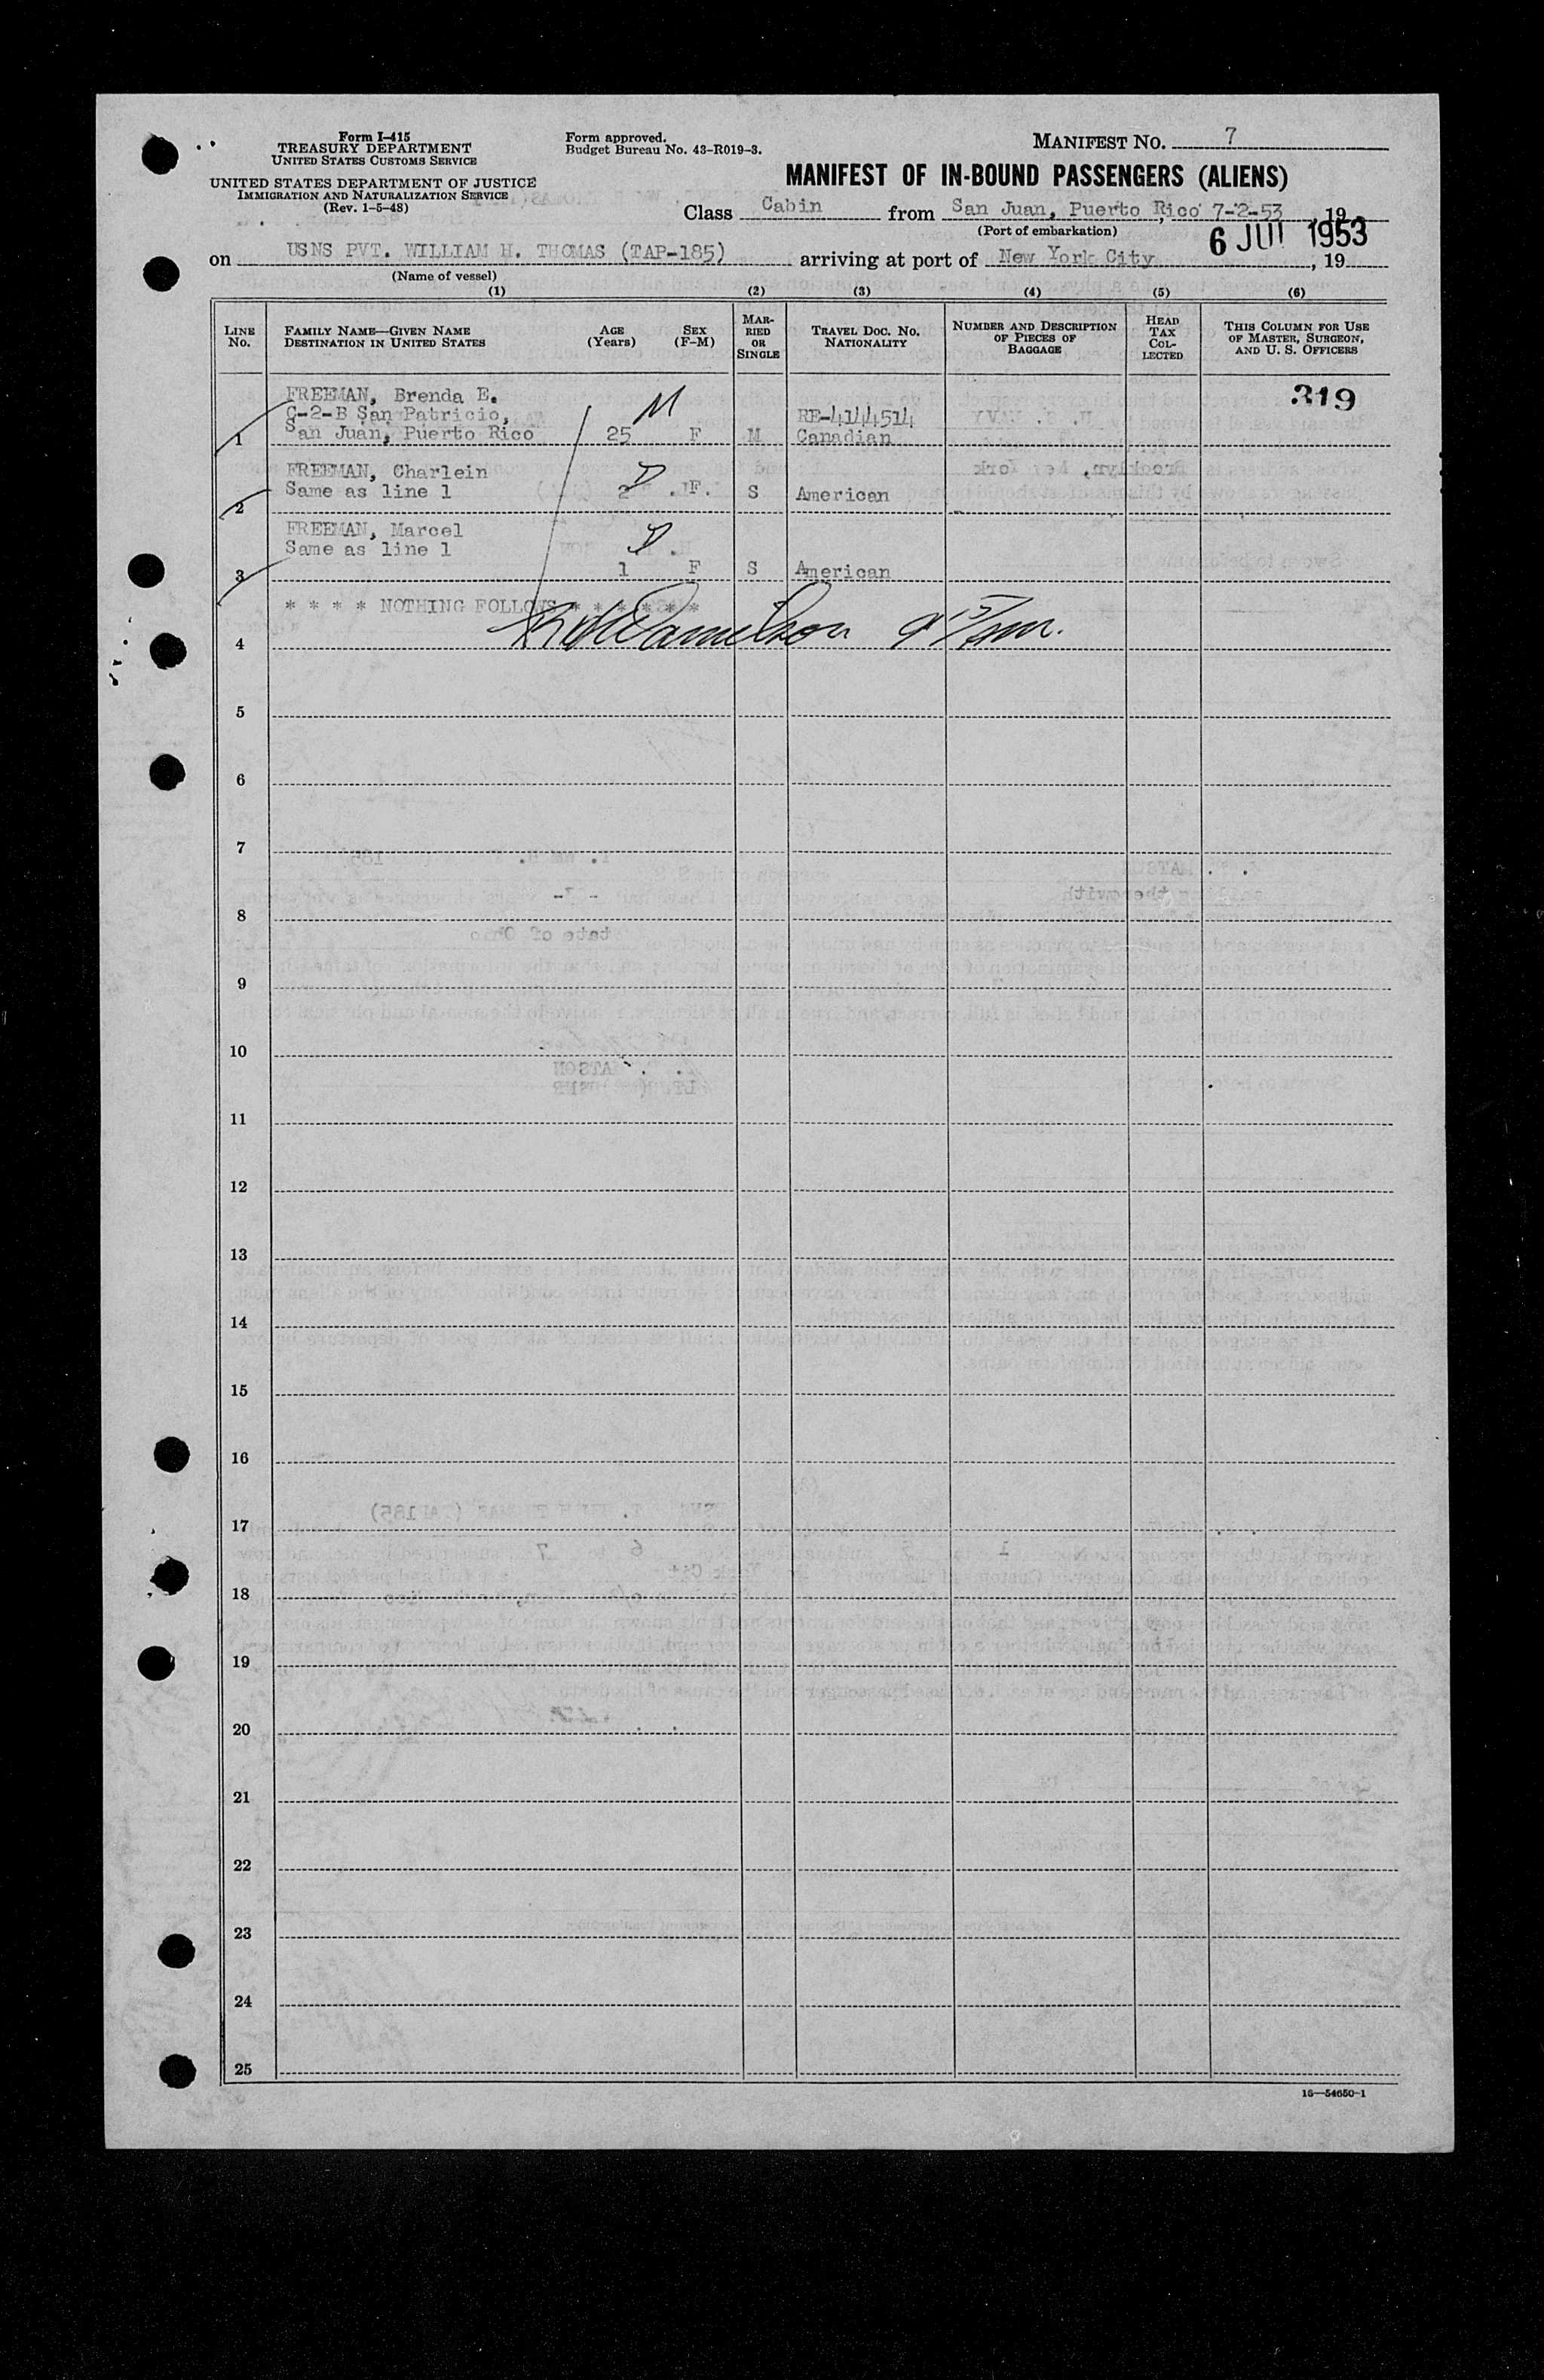 Form I-415
TREASURY DEPARTMENT
UNITED STATES CUSTOMS SERVICE
UNITED STATES DEPARTMENT OF JUSTICE
IMMIGRATION AND NATURALIZATION SERVICE
(Rev. 1-5-48)
Form approved.
Budget Bureau No. 43-R019-3.
MANIFEST NO. 7
MANIFEST OF IN-BOUND PASSENGERS (ALIENS)
Class Cabin from San Juan, Puerto Rico, 7-2-53, 19
(Port of embarkation)
on USNS PVT. WILLIAM H. THOMAS (TAP-185) arriving at port of New York City 6 JUL 1953, 19
(Name of vessel)
(1) (2) (3) (4) (5) (6)
LINE No.
FAMILY NAME—GIVEN NAME
DESTINATION IN UNITED STATES
AGE (Years)
SEX (F-M)
MARRIED OR SINGLE
TRAVEL DOC. NO.
NATIONALITY
NUMBER AND DESCRIPTION OF PIECES OF BAGGAGE
HEAD TAX COLLECTED
THIS COLUMN FOR USE OF MASTER, SURGEON, AND U. S. OFFICERS
319
FREEMAN, Brenda E. M
C-2-B San Patricio, RE-4144514
1 San Juan, Puerto Rico 25 F M Canadian
FREEMAN, Charlein
Same as line 1 2 F. S American
2
FREEMAN, Marcel
Same as line 1
3 1 F S American
* * * * NOTHING FOLLOWS * * * * * *
4
5
6
7
8
9
10
11
12
13
14
15
16
17
18
19
20
21
22
23
24
25
16—54650-1